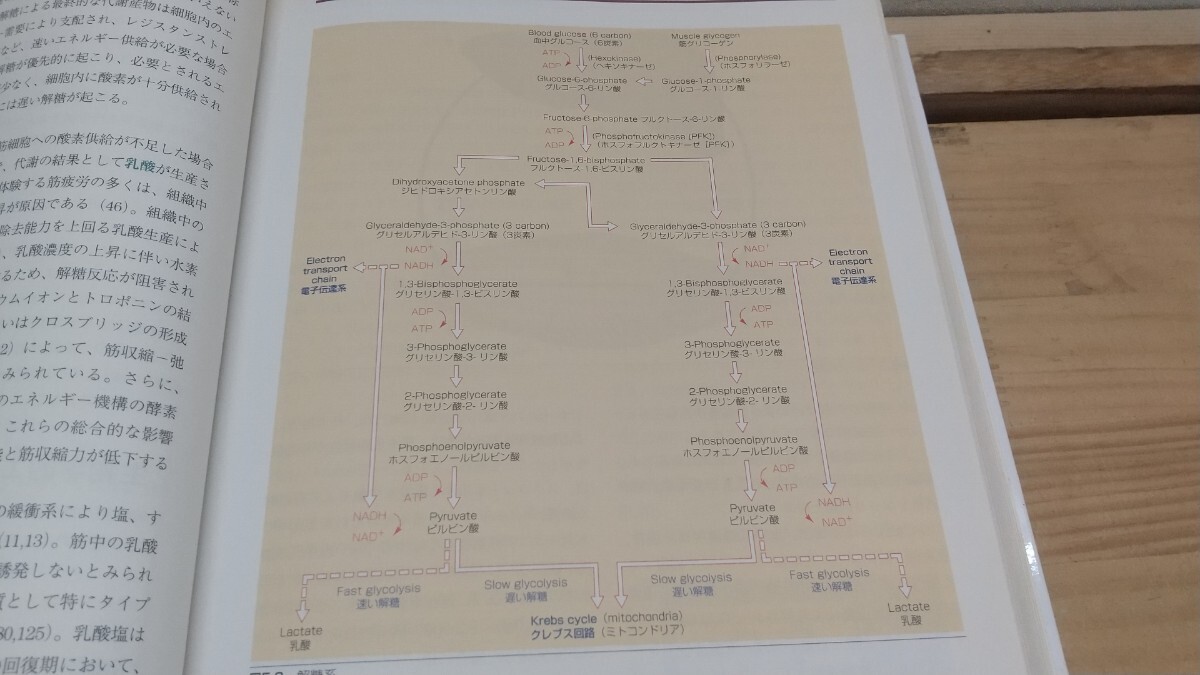 えない
解糖による最終的な代謝産物は細胞内のエ
需要により支配され、レジスタンストレ
など、速いエネルギー供給が必要な場合
解糖が優先的に起こり、必要とされるエ
少なく、細胞内に酸素が十分供給され
には遅い解糖が起こる。
筋細胞への酸素供給が不足した場合
、代謝の結果として乳酸が生産さ
体験する筋疲労の多くは、組織中
が原因である（46）。組織中の
除去能力を上回る乳酸生産によ
、乳酸濃度の上昇に伴い水素
るため、解糖反応が阻害され
ウムイオンとトロポニンの結
いはクロスブリッジの形成
2）によって、筋収縮－弛
みられている。さらに、
のエネルギー機構の酵素
これらの総合的な影響
と筋収縮力が低下する
の緩衝系により塩、す
(11,13)。筋中の乳酸
誘発しないとみられ
質として特にタイプ
80,125)。乳酸塩は
の回復期において、
Blood glucose (6 carbon)
血中グルコース（6炭素）
Muscle glycogen
筋グリコーゲン
ATP
ADP
(Hexokinase)
(ヘキソキナーゼ)
(Phosphorylase)
(ホスフォリラーゼ)
Glucose-6-phosphate
グルコース-6-リン酸
Glucose-1-phosphate
グルコース-1-リン酸
Fructose-6 phosphate フルクトース-6-リン酸
ATP
ADP
(Phosphofructokinase [PFK])
(ホスフォフルクトキナーゼ [PFK])
Fructose-1,6-Bisphosphate
フルクトース-1,6-ビスリン酸
Dihydroxyacetone phosphate
ジヒドロキシアセトンリン酸
Glyceraldehyde-3-phosphate (3 carbon)
グリセルアルデヒド-3-リン酸（3炭素）
Glyceraldehyde-3-phosphate (3 carbon)
グリセルアルデヒド-3-リン酸（3炭素）
NAD⁺
NADH
NAD⁺
NADH
Electron
transport
chain
電子伝達系
Electron
transport
chain
電子伝達系
1,3-Bisphosphoglycerate
グリセリン酸-1,3-ビスリン酸
1,3-Bisphosphoglycerate
グリセリン酸-1,3-ビスリン酸
ADP
ATP
ADP
ATP
3-Phosphoglycerate
グリセリン酸-3- リン酸
3-Phosphoglycerate
グリセリン酸-3- リン酸
2-Phosphoglycerate
グリセリン酸-2- リン酸
2-Phosphoglycerate
グリセリン酸-2- リン酸
Phosphoenolpyruvate
ホスフォエノールピルビン酸
Phosphoenolpyruvate
ホスフォエノールピルビン酸
ADP
ATP
ADP
ATP
NADH
NAD⁺
Pyruvate
ピルビン酸
Pyruvate
ピルビン酸
NADH
NAD⁺
Fast glycolysis
速い解糖
Slow glycolysis
遅い解糖
Slow glycolysis
遅い解糖
Fast glycolysis
速い解糖
Lactate
乳酸
Krebs cycle (mitochondria)
クレブス回路（ミトコンドリア）
Lactate
乳酸